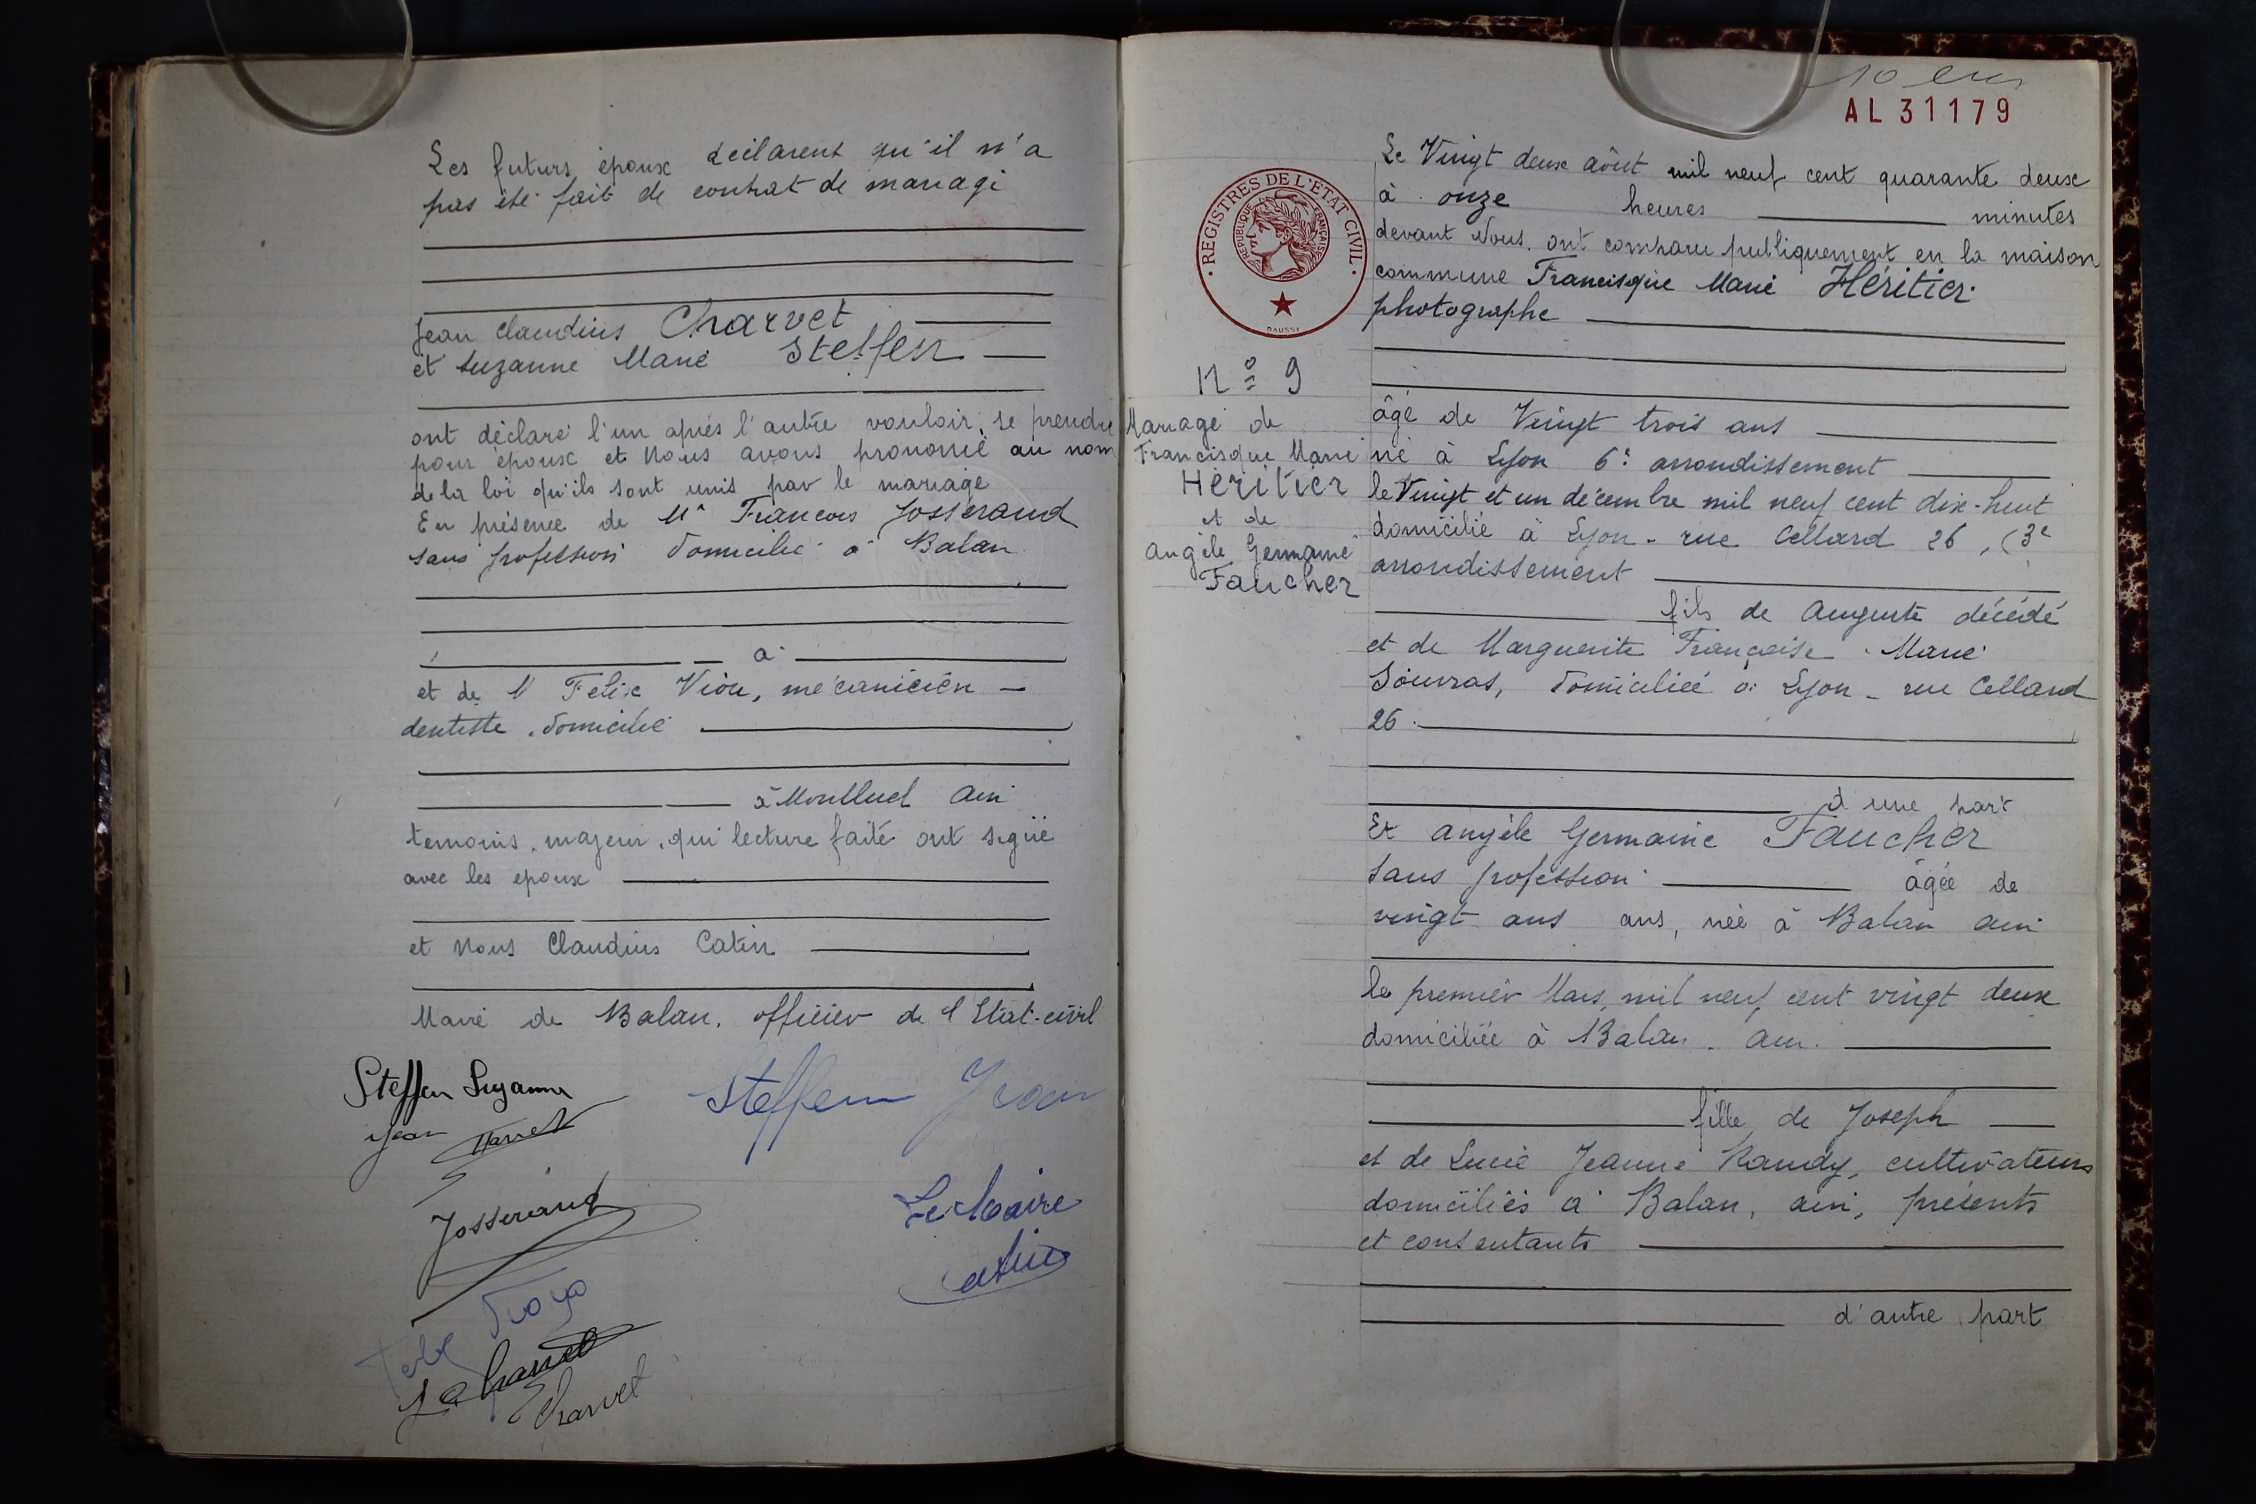 Les futurs époux déclarent qu'il n'a
pas été fait de contrat de mariage
Jean Claudius Charvet
et Suzanne Marie Steffen
ont déclaré l'un après l'autre vouloir se prendre
pour époux et Nous avons prononcé au nom
de la loi qu'ils sont unis par le mariage
En présence de Mr François Josserand
sans profession domicilié à Balan
à
et de M Félix Viou, mécanicien
dentiste domicilié
à Montluel Ain
temoins, majeur, qui lecture faite ont signé
avec les epoux
et Nous Claudius Catin
Maire de Balan, officier de l'Etat-civil
Steffen Suzanne
Steffen Jean
Jean Charvet
Josserand
Le Maire
Catin
Charvet
Charvet
10 em
AL 31179
REGISTRES DE L'ETAT CIVIL
REPUBLIQUE FRANÇAISE
DAUSSY
N° 9
Mariage de
Francisque Marie
Héritier
et de
Angèle Germaine
Faucher
Le Vingt deux août mil neuf cent quarante deux
à onze heures minutes
devant Nous, ont comparu publiquement en la maison
commune Francisque Marie Héritier
photographe
âgé de Vingt trois ans
né à Lyon 6e arrondissement
le Vingt et un décembre mil neuf cent dix-huit
domicilié à Lyon - rue Cellard 26, (3e
arrondissement
fils de Auguste décédé
et de Marguerite Françoise Marie
Souvras, domiciliée à Lyon - rue Cellard
26
d'une part
Et Angèle Germaine Faucher
sans profession âgée de
vingt ans ans, née à Balan Ain
le premier Mars mil neuf cent vingt deux
domiciliée à Balan. Ain.
fille de Joseph
et de Lucie Jeanne Randy, cultivateurs
domiciliés à Balan, Ain, présents
et consentants
d'autre part